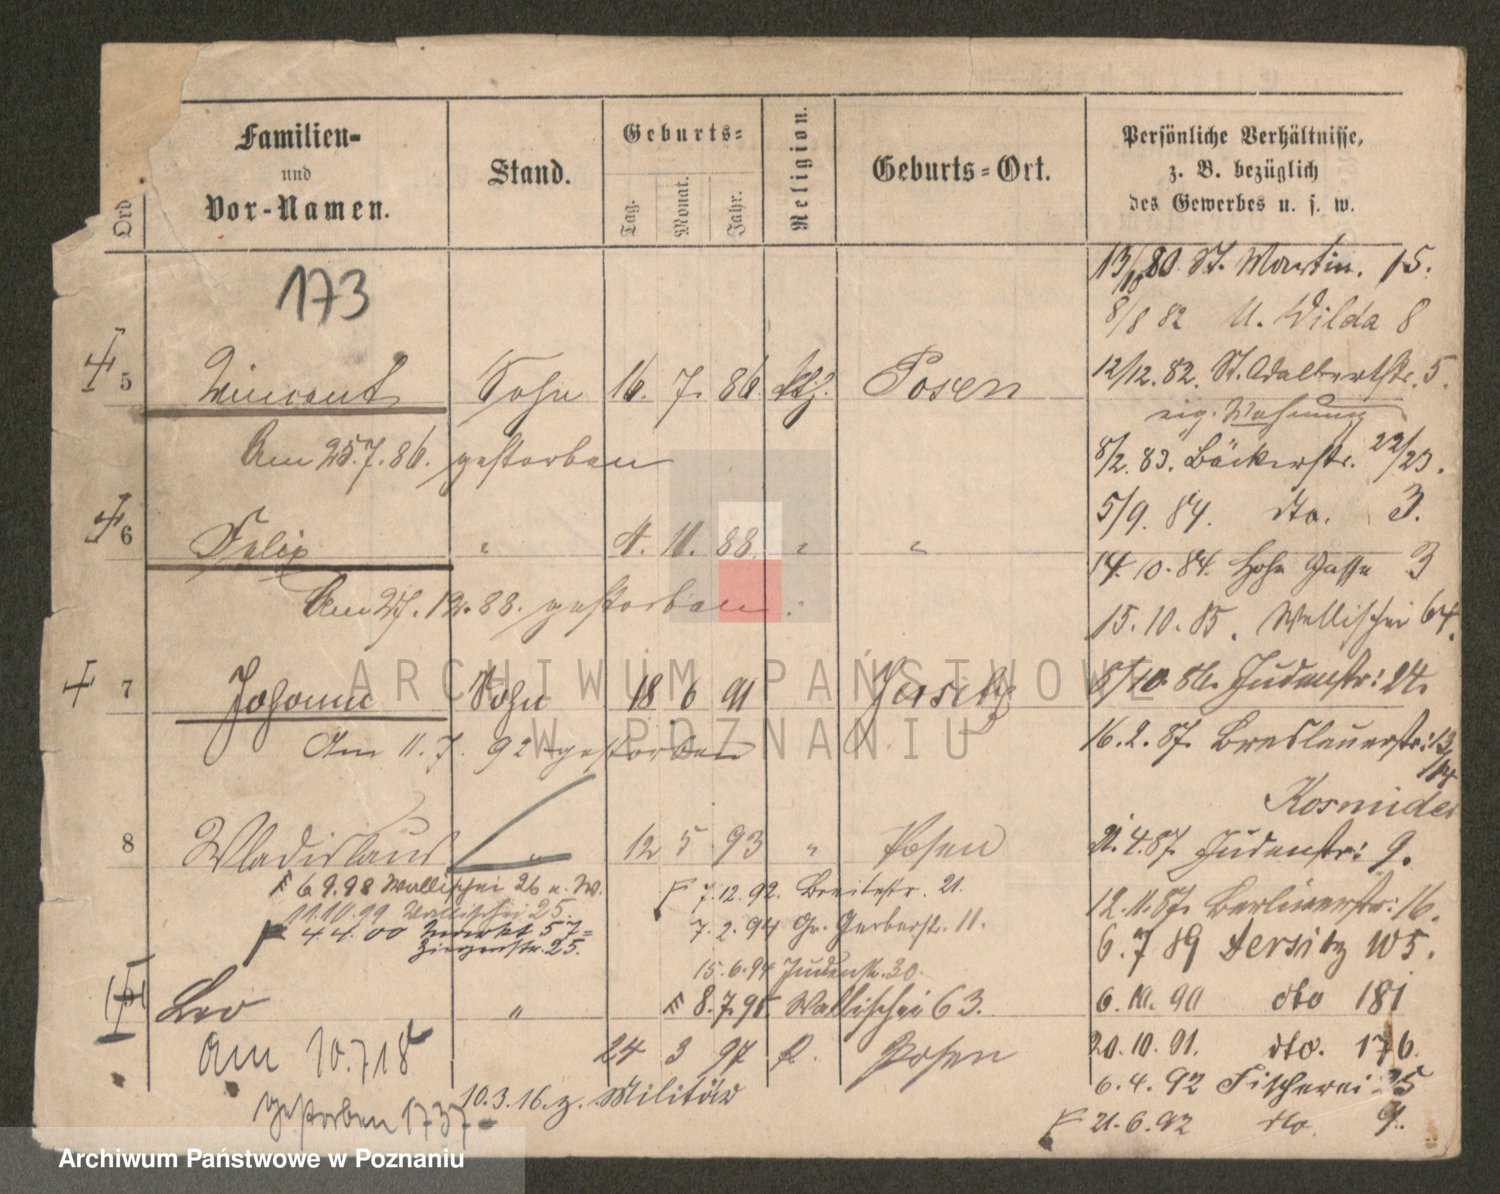 Ord
Familien-
und
Vor-Namen.
Stand.
Geburts-
Tag.
Monat.
Jahr.
Religion.
Geburts-Ort.
Persönliche Verhältnisse,
z. B. bezüglich
des Gewerbes u. s. w.
173
13/10 80 St. Martin. 15.
8/8 82 U. Wilda 8
12/12. 82. St. Adalbertstr. 5.
eig. Wohnung
5 Vincent Sohn 16. 7. 86. kth. Posen
Am 25.7.86. gestorben
8/2. 83. Bäckerstr. 22/23.
5/9. 84. dto. 3.
6 Felix " 4. 11. 88. " "
14.10.84. Hohe Gasse 3
Am 27.12.88. gestorben.
15.10.85. Wallischei 64.
7 Johann Sohn 18 6 91 Jersitz
8/10.86. Judenstr: 24.
Am 11.7.92 gestorben
16.2.87. Breslauerstr: 13/14
Kosmider
8 Wladislaus " 12 5 93 " Posen
21.4.87. Judenstr: 9.
6.9.98 Wallischei 26 u. W.
11.10.99 Wallischei 25.
4.4.00 57=
Ziegenstr. 25.
7.12.92. Breitestr. 21.
7.2.94 Gr. Gerberstr. 11.
15.6.94 Judenstr. 30
8.7.95 Wallischei 63.
12.11.87. Berlinerstr: 16.
6.7 89 Jersitz W5.
6.10.90 dto 181
20.10.91. dto. 176.
6.4.92 Fischerei 25
21.6.92 dto. 9.
9 Leo "
24 3 97 k. Posen
Am 10.7.18
gestorben 1737
10.3.16. z. Militär
ARCHIWUM PAŃSTWOWE
W POZNANIU
Archiwum Państwowe w Poznaniu